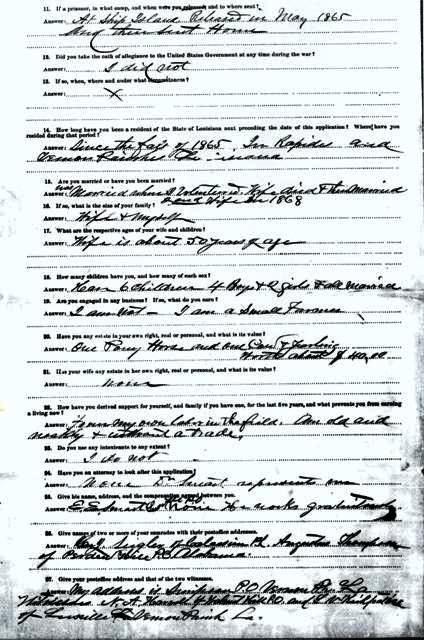 11. If a prisoner, in what camp, and when were you released and to where sent?
Answer: At Ship Island Released in May 1865
and then sent Home
12. Did you take the oath of allegiance to the United States Government at any time during the war?
Answer: I did not
13. If so, when, where and under what circumstances?
Answer: X
14. How long have you been a resident of the State of Louisiana next preceding the date of this application? Where have you
resided during that period?
Answer: Since the fall of 1865. In Rapides and
Vernon Parishes
15. Are you married or have you been married?
Answer: not Married when I Volunteered. Wife died & then married
2nd Wife in 1868
16. If so, what is the size of your family?
Answer: Wife & Myself
17. What are the respective ages of your wife and children?
Answer: Wife is about 50 years of age
18. How many children have you, and how many of each sex?
Answer: Have 6 children 4 Boys & 2 girls & all married
19. Are you engaged in any business? If so, what do you earn?
Answer: I am not - I am a Small Farmer
20. Have you any estate in your own right, real or personal, and what is its value?
Answer: One Pony Horse and one Cow & Yearling
worth about $40.00
21. Has your wife any estate in her own right, real or personal, and what is its value?
Answer: None
22. How have you derived support for yourself, and family if you have one, for the last five years, and what prevents you from earning
a living now?
Answer: From my own labor in the field. Am old and
& without a trade.
23. Do you use any intoxicants to any extent?
Answer: I do not
24. Have you an attorney to look after this application?
Answer: None Dr Smart represents me
25. Give his name, address, and the compensation agreed between you.
Answer: E. E. Smart None He works gratuitously
26. Give names of two or more of your comrades with their postoffice address.
Answer: Augustus Thompson
of
27. Give your postoffice address and that of the two witnesses.
Answer: My address is Simpson P.O. Vernon La.
Witnesses P.O. and
of Leesville Vernon Parish La.